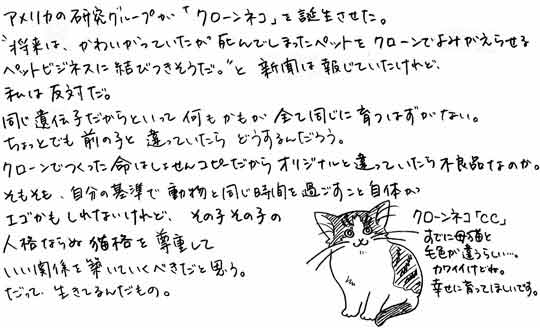 アメリカの研究グループが「クローンネコ」を誕生させた。
"将来は、かわいがっていたが死んでしまったペットをクローンでよみがえらせる
ペットビジネスに結びつきそうだ。"と 新聞は報じていたけれど、
私は反対だ。
同じ遺伝子だからといって何もかもが全て同じに育つはずがない。
ちょっとでも前の子と違っていたらどうするんだろう。
クローンでつくった命はしょせんコピーだからオリジナルと違っていたら不良品なのか。
そもそも、自分の基準で動物と同じ時間を過ごすこと自体が
エゴかもしれないけれど、その子その子の
人格ならぬ猫格を尊重して
いい関係を築いていくべきだと思う。
だって、生きてるんだもの。
クローンネコ「CC」
すでに母猫と
毛色が違うらしい…。
カワイイけどね。
幸せに育ってほしいです。